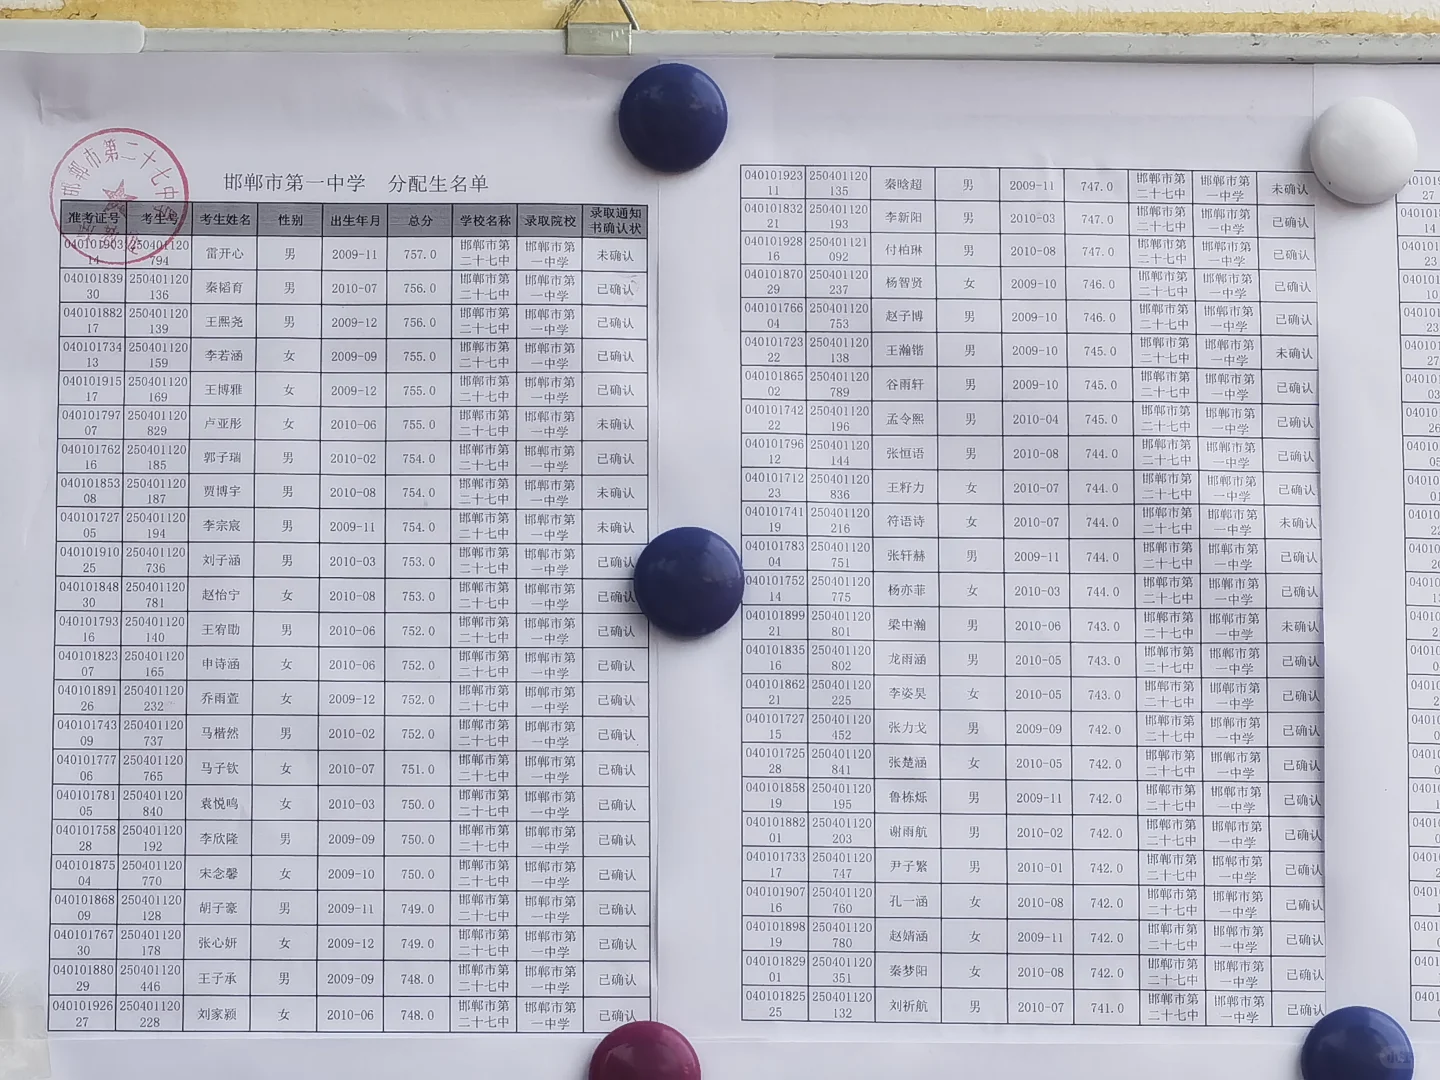 邯郸市第二十七中学
邯郸市第一中学 分配生名单
准考证号 考生号 考生姓名 性别 出生年月 总分 学校名称 录取院校 录取通知书确认状
04010190314 250401120794 雷开心 男 2009-11 757.0 邯郸市第二十七中 邯郸市第一中学 未确认
04010183930 250401120136 秦韬育 男 2010-07 756.0 邯郸市第二十七中 邯郸市第一中学 已确认
04010188217 250401120139 王熙尧 男 2009-12 756.0 邯郸市第二十七中 邯郸市第一中学 已确认
04010173413 250401120159 李若涵 女 2009-09 755.0 邯郸市第二十七中 邯郸市第一中学 已确认
04010191517 250401120169 王博雅 女 2009-12 755.0 邯郸市第二十七中 邯郸市第一中学 已确认
04010179707 250401120829 卢亚彤 女 2010-06 755.0 邯郸市第二十七中 邯郸市第一中学 未确认
04010176216 250401120185 郭子瑞 男 2010-02 754.0 邯郸市第二十七中 邯郸市第一中学 已确认
04010185308 250401120187 贾博宇 男 2010-08 754.0 邯郸市第二十七中 邯郸市第一中学 未确认
04010172705 250401120194 李宗宸 男 2009-11 754.0 邯郸市第二十七中 邯郸市第一中学 未确认
04010191025 250401120736 刘子涵 男 2010-03 753.0 邯郸市第二十七中 邯郸市第一中学 已确认
04010184830 250401120781 赵怡宁 女 2010-08 753.0 邯郸市第二十七中 邯郸市第一中学 已确认
04010179316 250401120140 王宥勋 男 2010-06 752.0 邯郸市第二十七中 邯郸市第一中学 已确认
04010182307 250401120165 申诗涵 女 2010-06 752.0 邯郸市第二十七中 邯郸市第一中学 已确认
04010189126 250401120232 乔雨萱 女 2009-12 752.0 邯郸市第二十七中 邯郸市第一中学 已确认
04010174309 250401120737 马楷然 男 2010-02 752.0 邯郸市第二十七中 邯郸市第一中学 已确认
04010177706 250401120765 马子钦 女 2010-07 751.0 邯郸市第二十七中 邯郸市第一中学 已确认
04010178105 250401120840 袁悦鸣 女 2010-03 750.0 邯郸市第二十七中 邯郸市第一中学 已确认
04010175828 250401120192 李欣隆 男 2009-09 750.0 邯郸市第二十七中 邯郸市第一中学 已确认
04010187504 250401120770 宋念馨 女 2009-10 750.0 邯郸市第二十七中 邯郸市第一中学 已确认
04010186809 250401120128 胡子豪 男 2009-11 749.0 邯郸市第二十七中 邯郸市第一中学 已确认
04010176730 250401120178 张心妍 女 2009-12 749.0 邯郸市第二十七中 邯郸市第一中学 已确认
04010188029 250401120446 王子承 男 2009-09 748.0 邯郸市第二十七中 邯郸市第一中学 已确认
04010192627 250401120228 刘家颍 女 2010-06 748.0 邯郸市第二十七中 邯郸市第一中学 已确认
04010192311 250401120135 秦晗超 男 2009-11 747.0 邯郸市第二十七中 邯郸市第一中学 未确认
04010183221 250401120193 李新阳 男 2010-03 747.0 邯郸市第二十七中 邯郸市第一中学 已确认
04010192816 250401121092 付柏琳 男 2010-08 747.0 邯郸市第二十七中 邯郸市第一中学 已确认
04010187029 250401120237 杨智贤 女 2009-10 746.0 邯郸市第二十七中 邯郸市第一中学 已确认
04010176604 250401120753 赵子博 男 2009-10 746.0 邯郸市第二十七中 邯郸市第一中学 已确认
04010172322 250401120138 王瀚锴 男 2009-10 745.0 邯郸市第二十七中 邯郸市第一中学 未确认
04010186502 250401120789 谷雨轩 男 2009-10 745.0 邯郸市第二十七中 邯郸市第一中学 已确认
04010174222 250401120196 孟令熙 男 2010-04 745.0 邯郸市第二十七中 邯郸市第一中学 已确认
04010179612 250401120144 张恒语 男 2010-08 744.0 邯郸市第二十七中 邯郸市第一中学 已确认
04010171223 250401120836 王籽力 女 2010-07 744.0 邯郸市第二十七中 邯郸市第一中学 已确认
04010174119 250401120216 符语诗 女 2010-07 744.0 邯郸市第二十七中 邯郸市第一中学 未确认
04010178304 250401120751 张轩赫 男 2009-11 744.0 邯郸市第二十七中 邯郸市第一中学 已确认
04010175214 250401120775 杨亦菲 女 2010-03 744.0 邯郸市第二十七中 邯郸市第一中学 已确认
04010189921 250401120801 梁中瀚 男 2010-06 743.0 邯郸市第二十七中 邯郸市第一中学 未确认
04010183516 250401120802 龙雨涵 男 2010-05 743.0 邯郸市第二十七中 邯郸市第一中学 已确认
04010186221 250401120225 李姿昊 女 2010-05 743.0 邯郸市第二十七中 邯郸市第一中学 已确认
04010172715 250401120452 张力戈 男 2009-09 742.0 邯郸市第二十七中 邯郸市第一中学 已确认
04010172528 250401120841 张楚涵 女 2010-05 742.0 邯郸市第二十七中 邯郸市第一中学 已确认
04010185819 250401120195 鲁栋烁 男 2009-11 742.0 邯郸市第二十七中 邯郸市第一中学 已确认
04010188201 250401120203 谢雨航 男 2010-02 742.0 邯郸市第二十七中 邯郸市第一中学 已确认
04010173317 250401120747 尹子繁 男 2010-01 742.0 邯郸市第二十七中 邯郸市第一中学 已确认
04010190716 250401120760 孔一涵 女 2010-08 742.0 邯郸市第二十七中 邯郸市第一中学 已确认
04010189819 250401120780 赵婧涵 女 2009-11 742.0 邯郸市第二十七中 邯郸市第一中学 已确认
04010182901 250401120351 秦梦阳 女 2010-08 742.0 邯郸市第二十七中 邯郸市第一中学 已确认
04010182525 250401120132 刘祈航 男 2010-07 741.0 邯郸市第二十七中 邯郸市第一中学 已确认